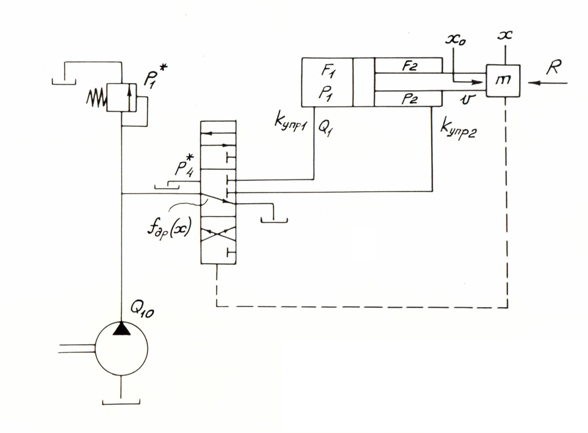 x₀
x
P₁*
F₁
P₁
F₂
P₂
m
R
v
kупр1
Q₁
kупр2
P₄*
fдр(x)
Q₁₀